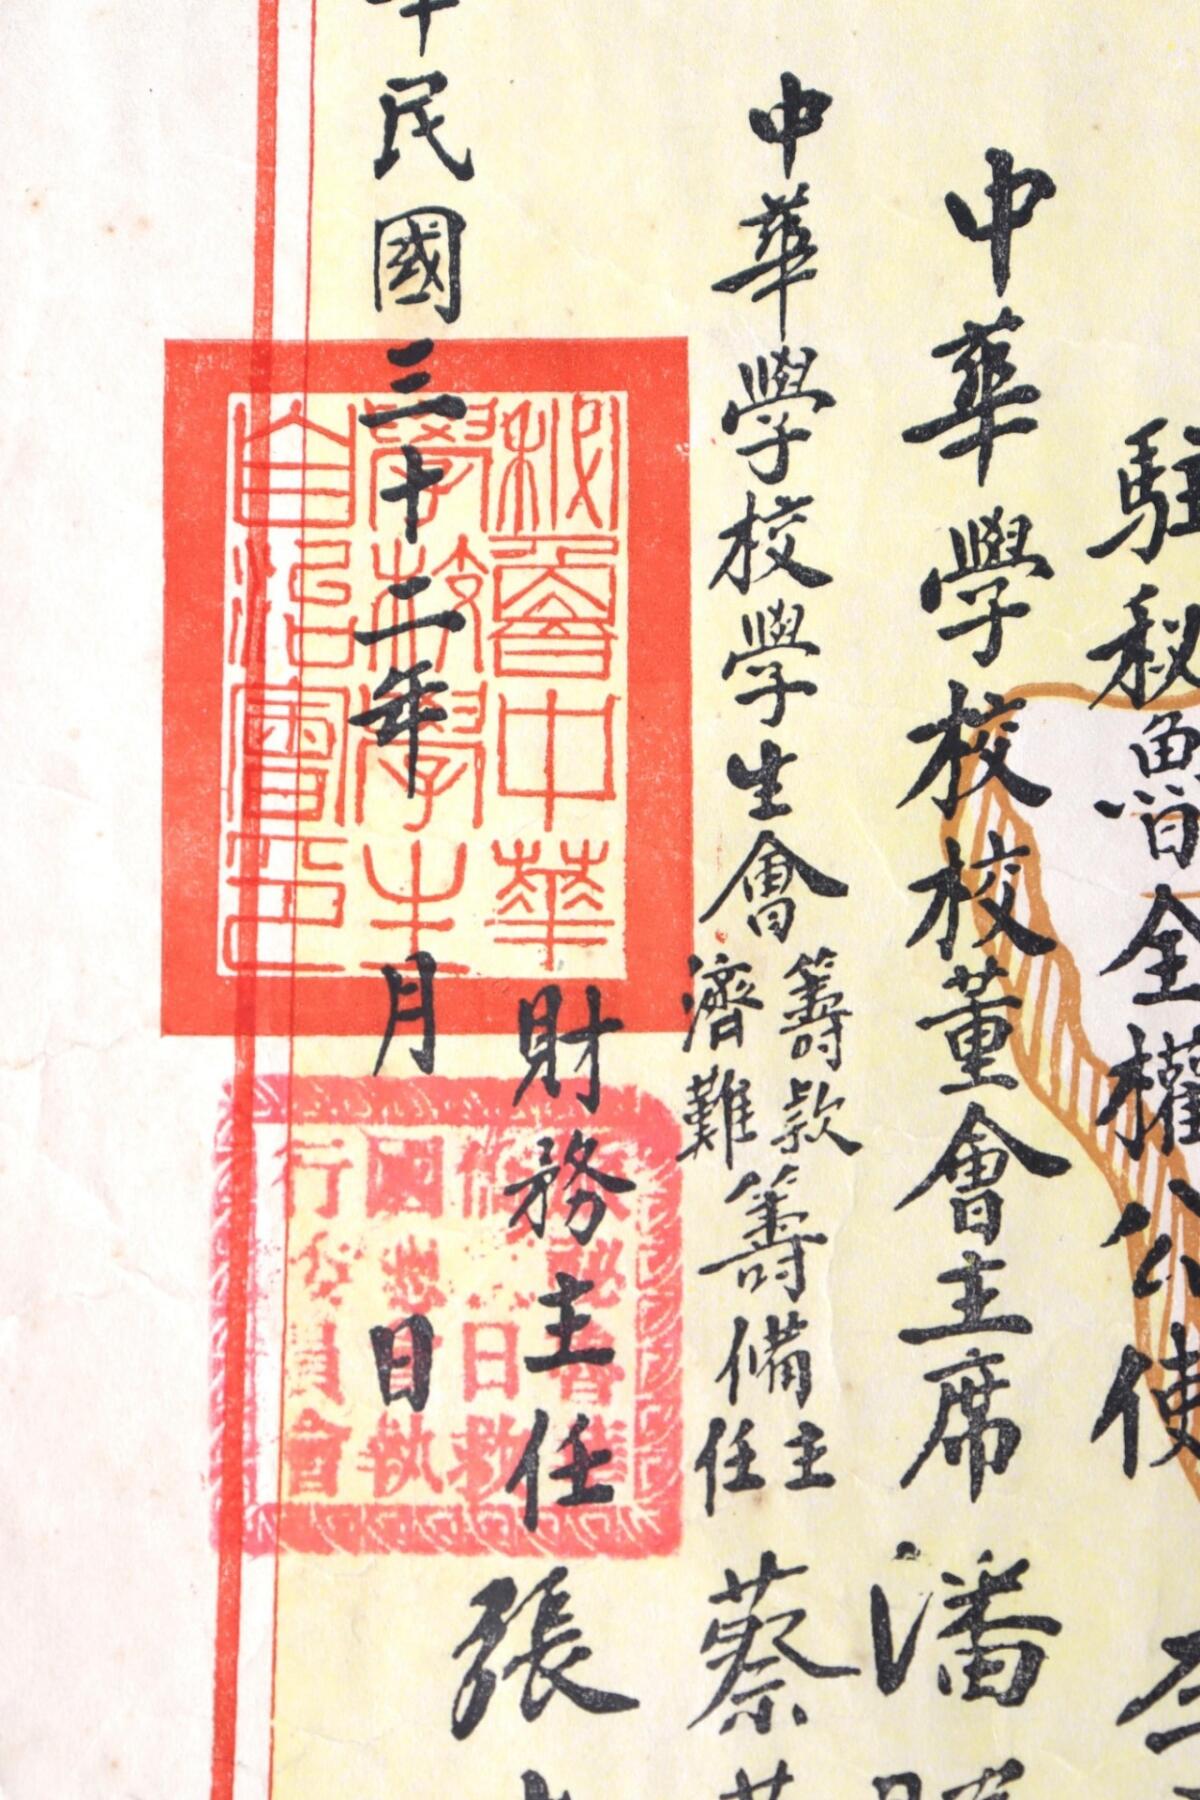 駐秘魯全權公使
中華學校校董會主席 潘
中華學校學生會籌款濟難籌備主任 蔡
財務主任 張
民國三十二年 月 日
秘魯中華
學校學生
自治會印
秘魯華
日救
國總會執
行委員會